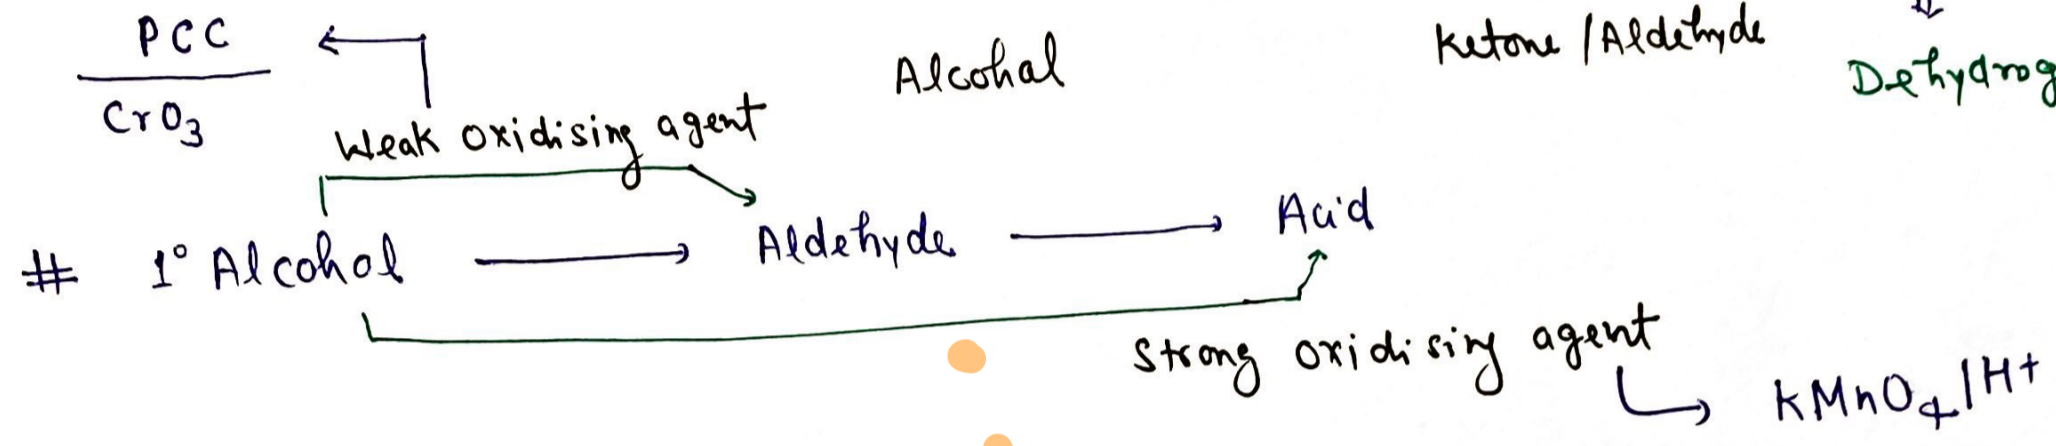 PCC
CrO3
Alcohal
Ketone / Aldehyde
Dehydrog
Weak oxidising agent
# 1° Alcohol → Aldehyde → Acid
Strong oxidising agent
KMnO4/H+